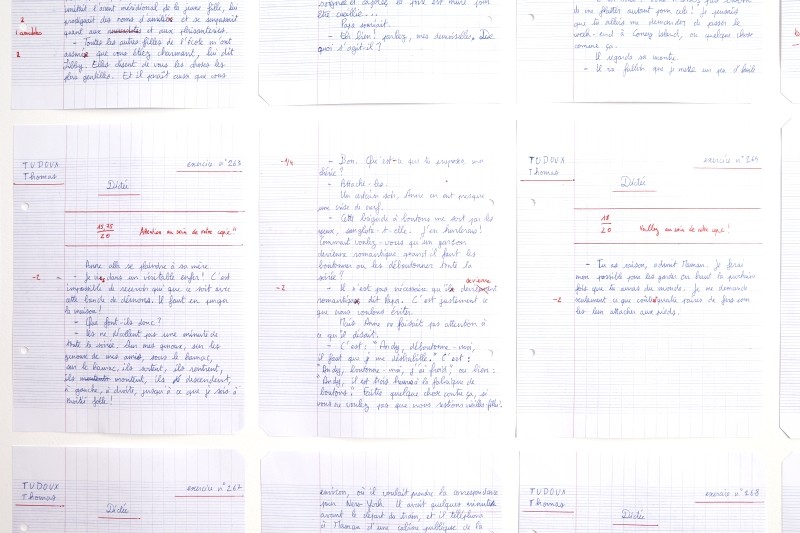 imitait l'accent méridional de la jeune fille, lui
quant aux anecdotes et aux plaisanteries.
- Toutes les autres filles de l'école m'ont
que vous étiez charmant, lui dit
Libby. Elles disent de vous les choses les
plus gentilles. Et il paraît aussi que vous
Papa souriait.
- Eh bien! parlez, mes demoiselles, De
quoi s'agit-il?
de me flatter autant pour cela! Je pensais
que tu allais me demander de passer le
week-end à Coney Island, ou quelque chose
comme ça.
Il regarda sa montre.
- Il va falloir que je mette un peu d'huile
TUDOUX
Thomas
exercice n°263
Dictée
15,75
20
Attention au soin de votre copie"
-2
Anne alla se plaindre à sa mère.
- Je vis dans un véritable enfer! C'est
impossible de recevoir qui que ce soit avec
cette bande de démons. Il faut en purger
la maison!
- Que font-ils donc?
- Ils ne décollent pas une minute de
toute la soirée. Sur mes genoux, sur les
genoux de mes amis, sous le hamac,
sur le hamac, ils sortent, ils rentrent,
ils montent, ils descendent,
à gauche, à droite, jusqu'à ce que je sois à
moitié folle!
-1/4
- Bon. Qu'est-ce que tu proposes, ma
chérie?
- Attache-les.
Un certain soir, Anne en eut presque
une crise de nerf.
- Cette brigade à boutons me sort par les
yeux, sanglota-t-elle. J'en hurlerai!
Comment voulez-vous qu'un garçon
devienne romantique quand il faut les
boutonner ou les déboutonner toute la
soirée?
devienne
-2
- Il n'est pas nécessaire qu'ils
romantiques, dit Papa. C'est justement ce
que nous voulons éviter.
Mais Anne ne faisait pas attention à
ce qu'il disait.
- C'est: "Andy, déboutonne-moi,
il faut que je me déshabille." C'est:
"Andy, boutonne-moi, j'ai froid", ou bien:
"Andy, il est trois heures à la fabrique de
boutons." Faites quelque chose contre ça, si
vous ne voulez pas que nous restions vieilles filles!
TUDOUX
Thomas
Dictée
18
20
Veillez au soin de votre copie!
- Tu as raison, admit Maman. Je ferai
mon possible pour les garder en haut la prochaine
fois que tu auras du monde. Je me demande
-2
seulement ce que coûterait paires de fers pour
les leur attacher aux pieds.
TUDOUX
Thomas
exercice n°267
Dictée
environ, où il voulait prendre la correspondance
pour New York. Il avait quelques minutes
avant le départ du train, et il téléphona
à Maman d'une cabine publique de la
TUDOUX
Thomas
exercice n°268
Dictée